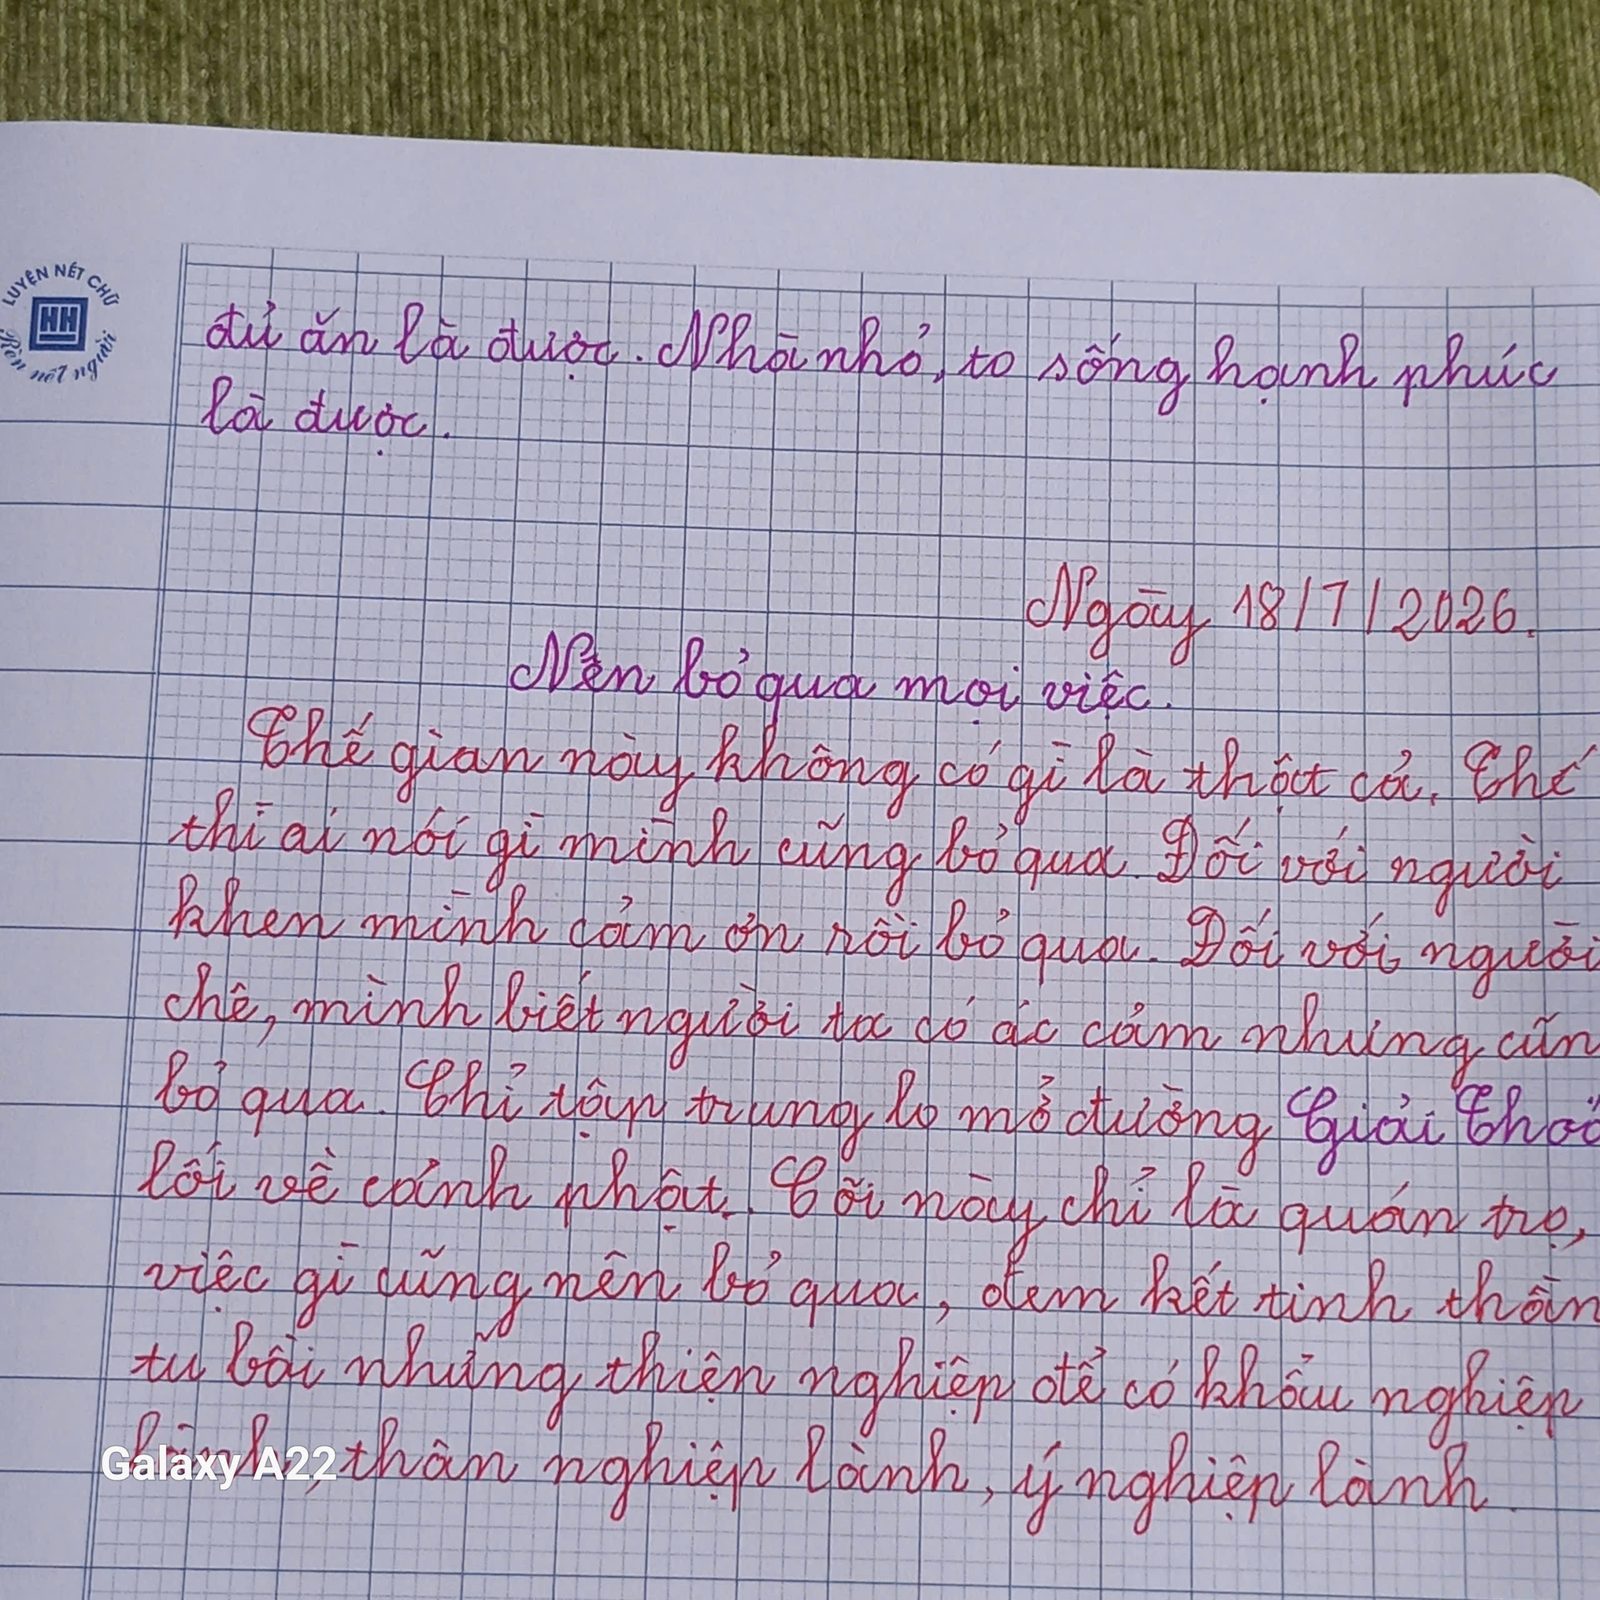 LUYỆN NẾT CHỮ
HH
Rèn nết người
đủ ăn là được. Nhà nhỏ, to sống hạnh phúc
là được.
Ngày 18/7/2026.
Nên bỏ qua mọi việc.
Thế gian này không có gì là thật cả. Thế
thì ai nói gì mình cũng bỏ qua. Đối với người
khen mình cảm ơn rồi bỏ qua. Đối với người
chê, mình biết người ta có ác cảm nhưng cũn
bỏ qua. Chỉ tập trung lo mở đường Giải Thoá
lối về cảnh phật. Cõi này chỉ là quán trọ,
việc gì cũng nên bỏ qua, đem hết tinh thần
tu bồi những thiện nghiệp để có khẩu nghiệp
thân nghiệp lành, ý nghiệp lành.
Galaxy A22